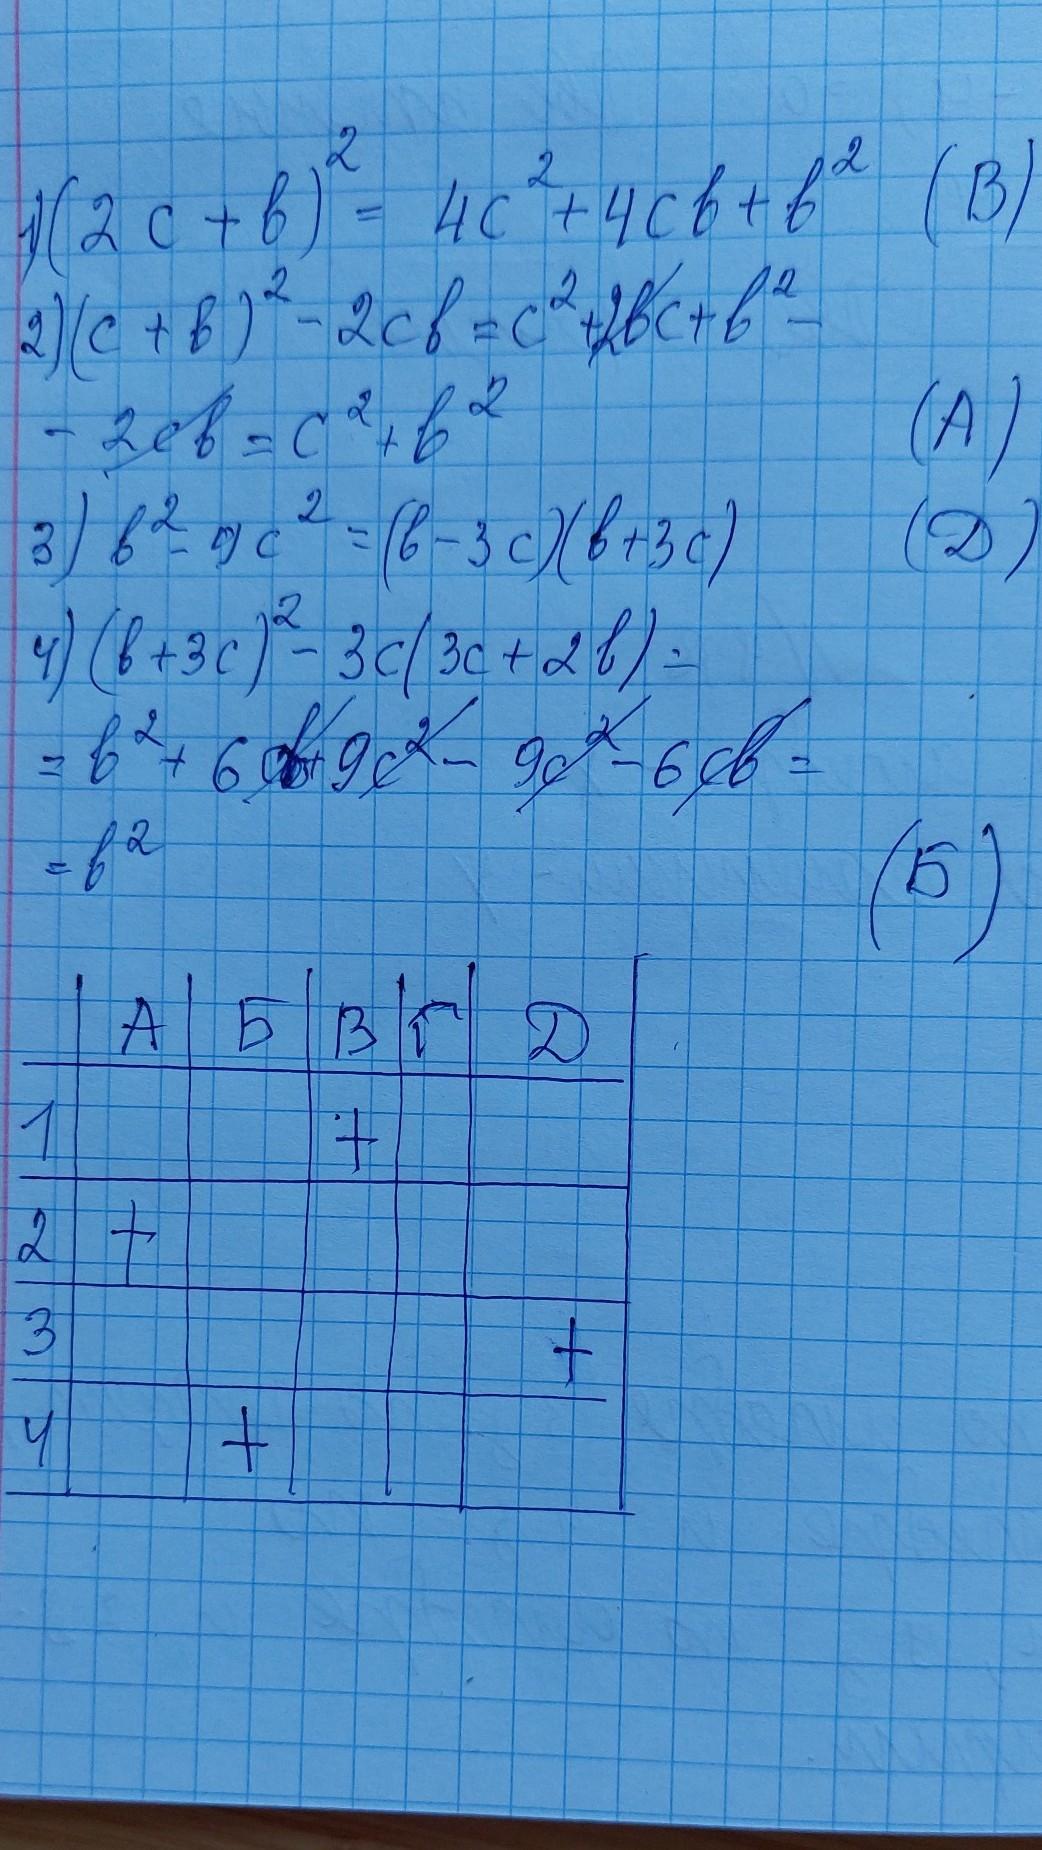 1) (2c + b)² = 4c² + 4cb + b² (В)
2) (c + b)² - 2cb = c² + 2bc + b² -
- 2cb = c² + b² (А)
3) b² - 9c² = (b - 3c)(b + 3c) (Д)
4) (b + 3c)² - 3c(3c + 2b) =
= b² + 6cb + 9c² - 9c² - 6cb =
= b² (Б)
А Б В Г Д
1 +
2 +
3 +
4 +